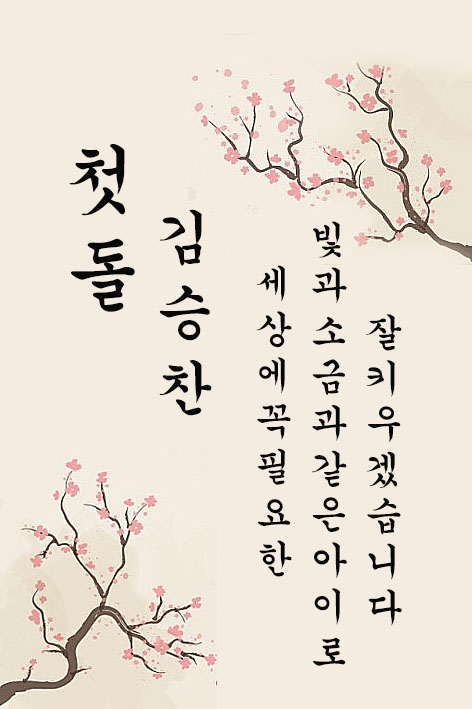 첫돌
김승찬
세상에꼭필요한
빛과소금과같은아이로
잘키우겠습니다